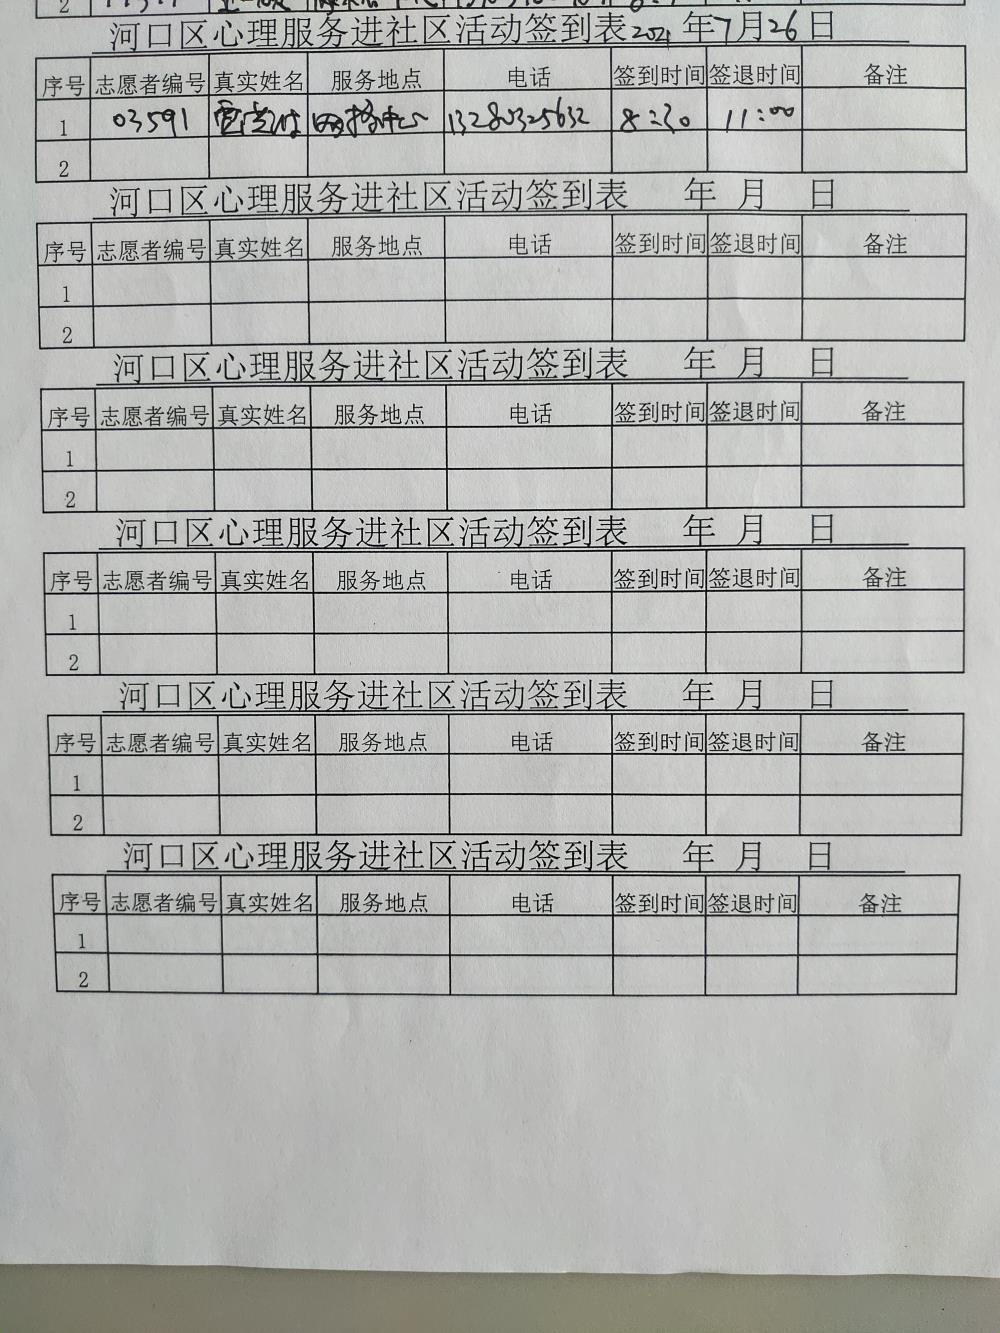 2
河口区心理服务进社区活动签到表2021年7月26日
序号 志愿者编号 真实姓名 服务地点 电话 签到时间 签退时间 备注
1 03591 中心 13280325632 8:30 11:00
2
河口区心理服务进社区活动签到表 年 月 日
序号 志愿者编号 真实姓名 服务地点 电话 签到时间 签退时间 备注
1
2
河口区心理服务进社区活动签到表 年 月 日
序号 志愿者编号 真实姓名 服务地点 电话 签到时间 签退时间 备注
1
2
河口区心理服务进社区活动签到表 年 月 日
序号 志愿者编号 真实姓名 服务地点 电话 签到时间 签退时间 备注
1
2
河口区心理服务进社区活动签到表 年 月 日
序号 志愿者编号 真实姓名 服务地点 电话 签到时间 签退时间 备注
1
2
河口区心理服务进社区活动签到表 年 月 日
序号 志愿者编号 真实姓名 服务地点 电话 签到时间 签退时间 备注
1
2